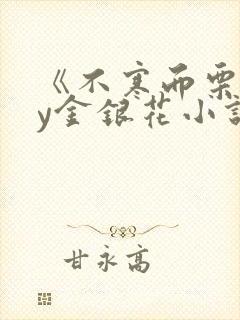 《不寒而栗
y金银花小说
甘永高